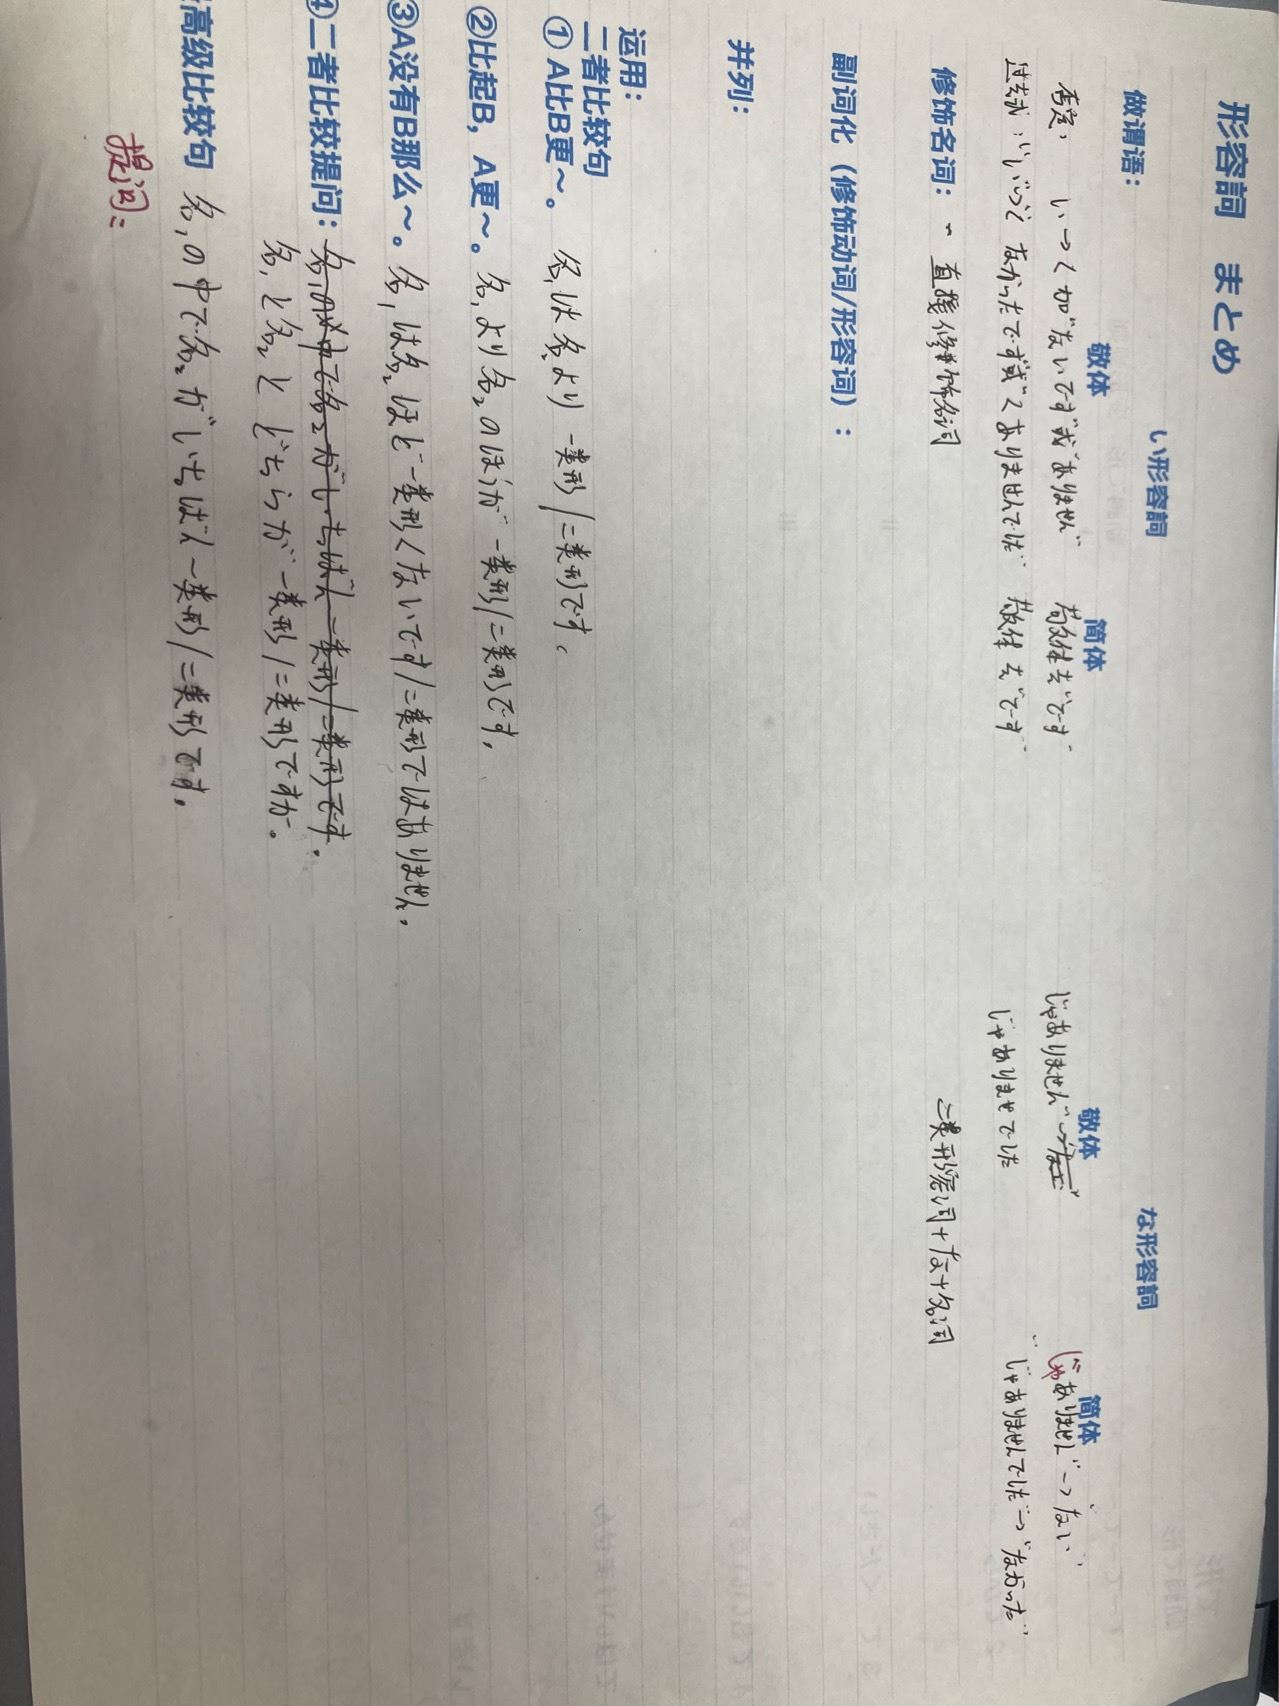 形容詞 まとめ
い形容詞 な形容詞
做谓语： 敬体 简体 敬体 简体
否定： い→く加"ないです"或"ありません" 敬体去"です" じゃありません"→ じゃありません"→"ない"
过去式：い→" なかったです"或"くありませんでした" 敬体去"です" じゃありませでした "じゃありませんでした→"なかった"
修饰名词： 直接修饰名词 二类形容词+な+名词
副词化（修饰动词/形容词）：
并列：
运用：
二者比较句
① A比B更～。 名₁は名₂より 一类形/二类形です。
②比起B，A更～。 名₁より名₂のほうが 一类形/二类形です。
③A没有B那么～。 名₁は名₂ほど一类形くないです/二类形ではありません。
④二者比较提问： 名₁の中で名₂がいちばん一类形/二类形です。
名₁と名₂とどちらが一类形/二类形ですか。
高级比较句 名₁の中で名₂がいちばん一类形/二类形です。
提问：